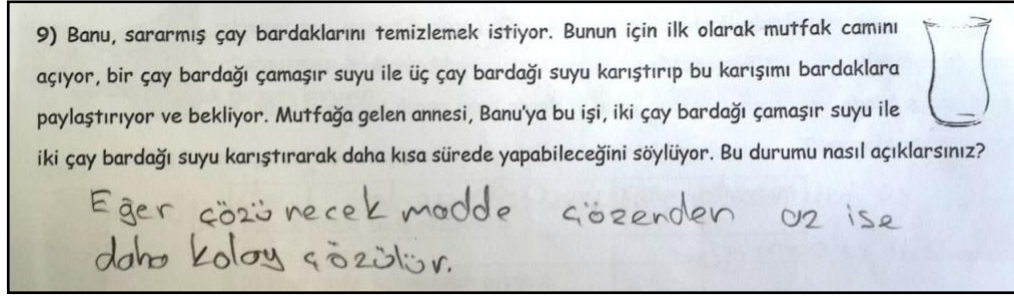 9) Banu, sararmış çay bardaklarını temizlemek istiyor. Bunun için ilk olarak mutfak camını
açıyor, bir çay bardağı çamaşır suyu ile üç çay bardağı suyu karıştırıp bu karışımı bardaklara
paylaştırıyor ve bekliyor. Mutfağa gelen annesi, Banu'ya bu işi, iki çay bardağı çamaşır suyu ile
iki çay bardağı suyu karıştırarak daha kısa sürede yapabileceğini söylüyor. Bu durumu nasıl açıklarsınız?
Eğer çözünecek madde çözenden az ise
daha kolay çözülür.